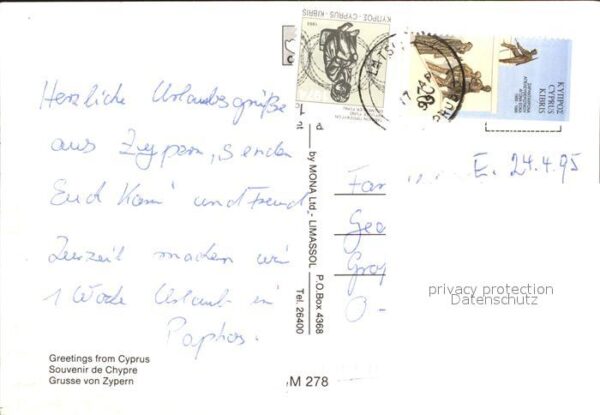 Herzliche Urlaubsgrüße
aus Zypern, senden
Euch Karin und Freund.
Zurzeit machen wir
1 Woche Urlaub in
Paphos.
Greetings from Cyprus
Souvenir de Chypre
Grusse von Zypern
by MONA Ltd.- LIMASSOL P.O.Box 4368
Tel. 26400
M 278
ΚΥΠΡΟΣ - CYPRUS - KIBRIS
1974
ΚΥΠΡΟΣ
CYPRUS
KIBRIS
E. 24.4.95
Fam
Geo
O-
privacy protection
Datenschutz